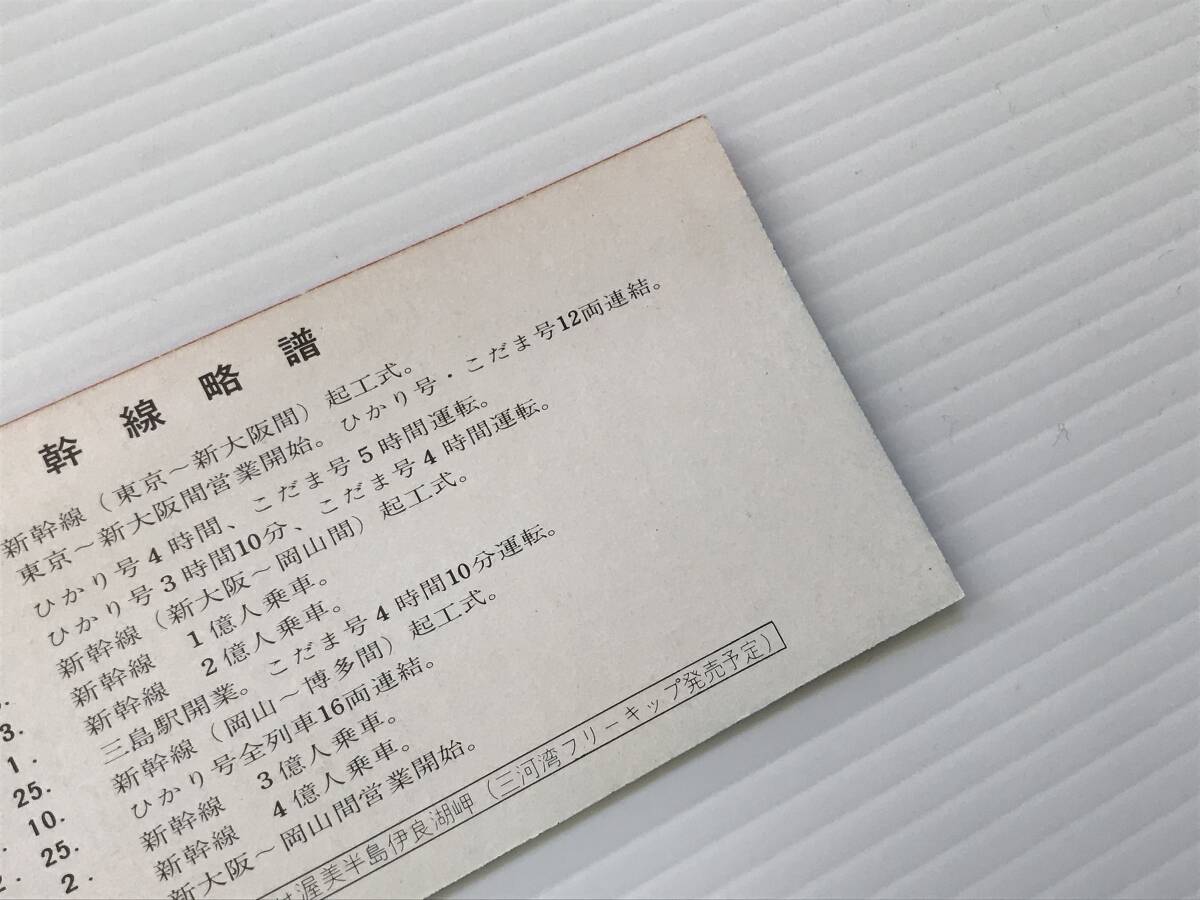 幹線略譜
新幹線（東京～新大阪間）起工式。
東京～新大阪間営業開始。ひかり号・こだま号12両連結。
ひかり号4時間、こだま号5時間運転。
ひかり号3時間10分、こだま号4時間運転。
新幹線（新大阪～岡山間）起工式。
新幹線 1億人乗車。
新幹線 2億人乗車。
3. 三島駅開業。こだま号4時間10分運転。
1. 新幹線（岡山～博多間）起工式。
25. ひかり号全列車16両連結。
10. 新幹線 3億人乗車。
25. 新幹線 4億人乗車。
2. 新大阪～岡山間営業開始。
渥美半島伊良湖岬（三河湾フリーキップ発売予定）